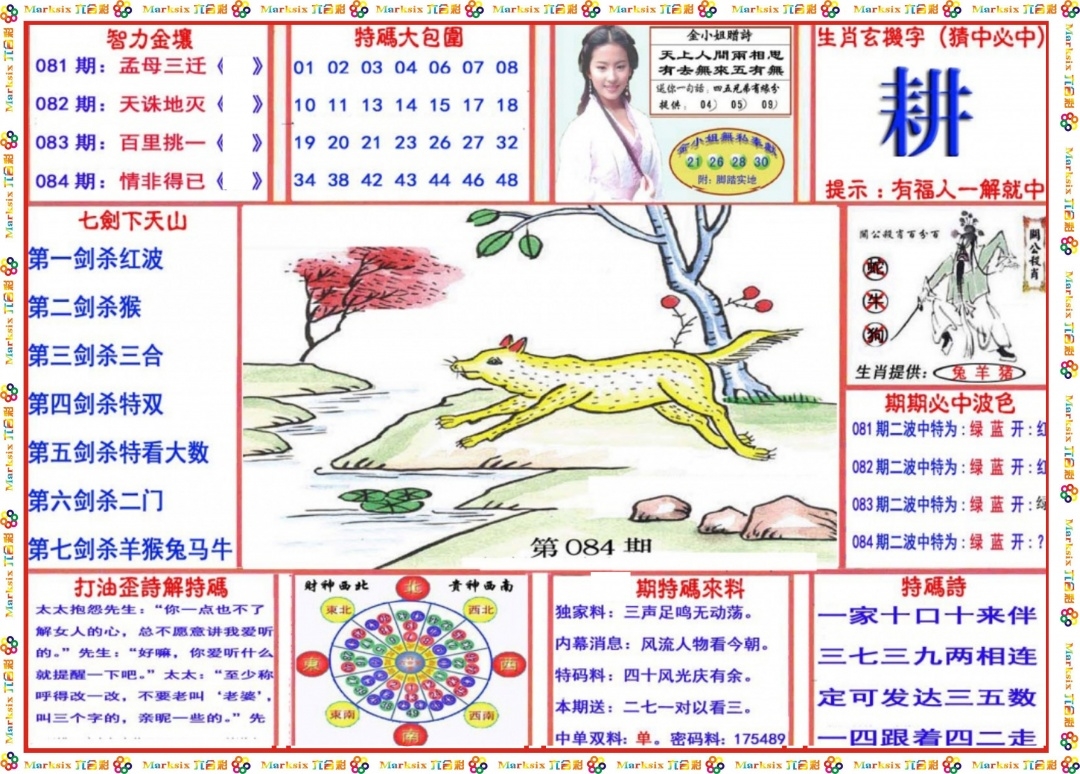 Marksix 六合彩
智力金壤
081 期：孟母三迁《 》
082 期：天诛地灭《 》
083 期：百里挑一《 》
084 期：情非得已《 》
特碼大包圍
01 02 03 04 06 07 08
10 11 13 14 15 17 18
19 20 21 23 26 27 32
34 38 42 43 44 46 48
金小姐贈詩
天上人間兩相思
有去無來五有無
送你一句話：四五兄弟有緣分
提供：04） 05） 09）
金小姐無私奉獻
21 26 28 30
附：脚踏实地
生肖玄機字（猜中必中）
耕
提示：有福人一解就中
七劍下天山
第一剑杀红波
第二剑杀猴
第三剑杀三合
第四剑杀特双
第五剑杀特看大数
第六剑杀二门
第七剑杀羊猴兔马牛
第 084 期
關公殺肖百分百
關公殺肖
蛇
牛
狗
生肖提供：兔 羊 猪
期期必中波色
081 期二波中特为：绿 蓝 开：红
082 期二波中特为：绿 蓝 开：红
083 期二波中特为：绿 蓝 开：绿
084 期二波中特为：绿 蓝 开：？
打油歪詩解特碼
太太抱怨先生：“你一点也不了
解女人的心，总不愿意讲我爱听
的。”先生：“好嘛，你爱听什么
就提醒一下吧。”太太：“至少称
呼得改一改，不要老叫‘老婆’，
叫三个字的，亲昵一些的。”先
財神西北 貴神西南
北
東北 西北
東 西
東南 西南
南
期特碼來料
独家料：三声足鸣无动荡。
内幕消息：风流人物看今朝。
特码料：四十风光庆有余。
本期送：二七一对以看三。
中单双料：单。密码料：175489
特碼詩
一家十口十来伴
三七三九两相连
定可发达三五数
一四跟着四二走